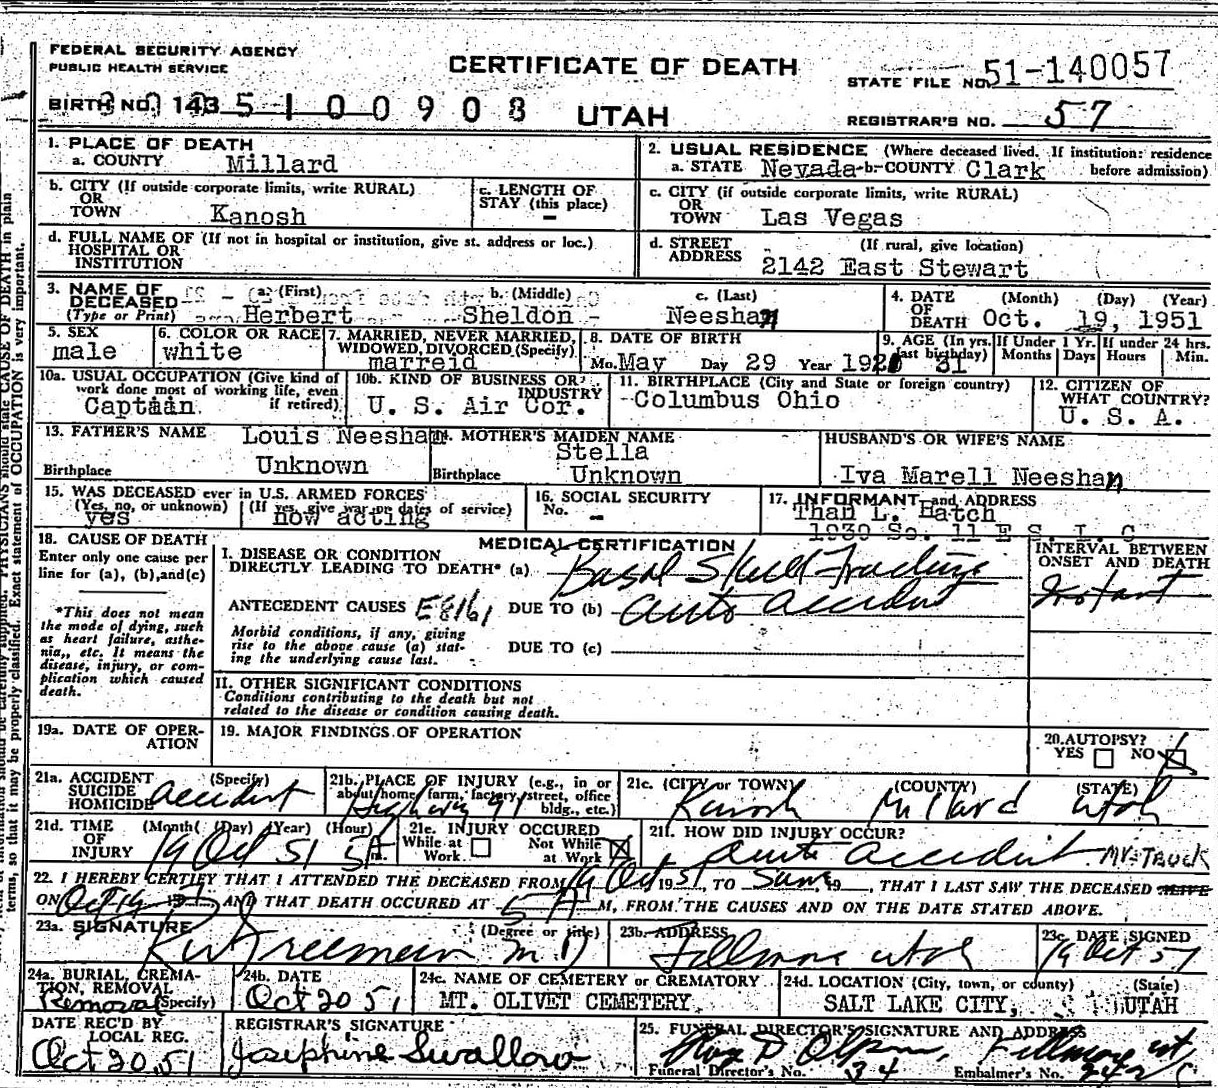 FEDERAL SECURITY AGENCY
PUBLIC HEALTH SERVICE
CERTIFICATE OF DEATH
STATE FILE NO. 51-140057
BIRTH NO. 143 5 1 0 0 9 0 8
UTAH
REGISTRAR'S NO. 57
1. PLACE OF DEATH
a. COUNTY Millard
2. USUAL RESIDENCE (Where deceased lived. If institution: residence before admission)
a. STATE Nevada b. COUNTY Clark
b. CITY (If outside corporate limits, write RURAL)
OR
TOWN Kanosh
c. LENGTH OF
STAY (this place)
-
c. CITY (if outside corporate limits, write RURAL)
OR
TOWN Las Vegas
d. FULL NAME OF (If not in hospital or institution, give st. address or loc.)
HOSPITAL OR
INSTITUTION
d. STREET (If rural, give location)
ADDRESS 2142 East Stewart
3. NAME OF
DECEASED
(Type or Print)
a. (First) b. (Middle) c. (Last)
Herbert Sheldon - Neeshan
4. DATE (Month) (Day) (Year)
OF
DEATH Oct. 19, 1951
5. SEX
male
6. COLOR OR RACE
white
7. MARRIED, NEVER MARRIED,
WIDOWED, DIVORCED (Specify)
marreid
8. DATE OF BIRTH
Mo. May Day 29 Year 192
9. AGE (In yrs. last birthday) 31
If Under 1 Yr. Months Days
If under 24 hrs. Hours Min.
10a. USUAL OCCUPATION (Give kind of
work done most of working life, even
if retired)
Captain
10b. KIND OF BUSINESS OR
INDUSTRY
U. S. Air Cor.
11. BIRTHPLACE (City and State or foreign country)
Columbus Ohio
12. CITIZEN OF
WHAT COUNTRY?
U. S. A.
13. FATHER'S NAME Louis Neeshan
Birthplace Unknown
14. MOTHER'S MAIDEN NAME
Stella
Birthplace Unknown
HUSBAND'S OR WIFE'S NAME
Iva Marell Neeshan
15. WAS DECEASED ever in U.S. ARMED FORCES
(Yes, no, or unknown) (If yes, give war or dates of service)
yes now acting
16. SOCIAL SECURITY
No. -
17. INFORMANT and ADDRESS
Than L. Hatch
1930 So. 11 E S. L. C
18. CAUSE OF DEATH
Enter only one cause per
line for (a), (b), and (c)
*This does not mean
the mode of dying, such
as heart failure, asthe-
nia,, etc. It means the
disease, injury, or com-
plication which caused
death.
MEDICAL CERTIFICATION
I. DISEASE OR CONDITION
DIRECTLY LEADING TO DEATH* (a) Basal Skull Fracture
ANTECEDENT CAUSES E8161 DUE TO (b) auto accident
Morbid conditions, if any, giving
rise to the above cause (a) stat-
ing the underlying cause last.
DUE TO (c)
INTERVAL BETWEEN
ONSET AND DEATH
Instant
II. OTHER SIGNIFICANT CONDITIONS
Conditions contributing to the death but not
related to the disease or condition causing death.
19a. DATE OF OPER-
ATION
19. MAJOR FINDINGS OF OPERATION
20. AUTOPSY?
YES NO
21a. ACCIDENT (Specify)
SUICIDE
HOMICIDE accident
21b. PLACE OF INJURY (e.g., in or
about home, farm, factory, street, office
bldg., etc.)
Highway 91
21c. (CITY or TOWN) (COUNTY) (STATE)
Kanosh Millard Utah
21d. TIME (Month) (Day) (Year) (Hour)
OF
INJURY 19 Oct 51 5A m.
21e. INJURY OCCURED
While at Work Not While at Work
21f. HOW DID INJURY OCCUR?
auto accident. MV-TRUCK
22. I HEREBY CERTIFY THAT I ATTENDED THE DECEASED FROM 19 Oct 1951, TO Same, 19 , THAT I LAST SAW THE DECEASED ALIVE
ON Oct 19 AND THAT DEATH OCCURED AT 5 A M, FROM THE CAUSES AND ON THE DATE STATED ABOVE.
23a. SIGNATURE (Degree or title)
Freeman M.D
23b. ADDRESS
Fillmore Utah
23c. DATE SIGNED
19 Oct 51
24a. BURIAL, CREMA-
TION, REMOVAL
(Specify) Removal
24b. DATE
Oct 20 51
24c. NAME OF CEMETERY or CREMATORY
MT. OLIVET CEMETERY
24d. LOCATION (City, town, or county) (State)
SALT LAKE CITY, UTAH
DATE REC'D BY
LOCAL REG.
Oct 20, 51
REGISTRAR'S SIGNATURE
Josephine Swallow
25. FUNERAL DIRECTOR'S SIGNATURE AND ADDRESS
Fillmore ut
Funeral Director's No. 34 Embalmer's No. 242